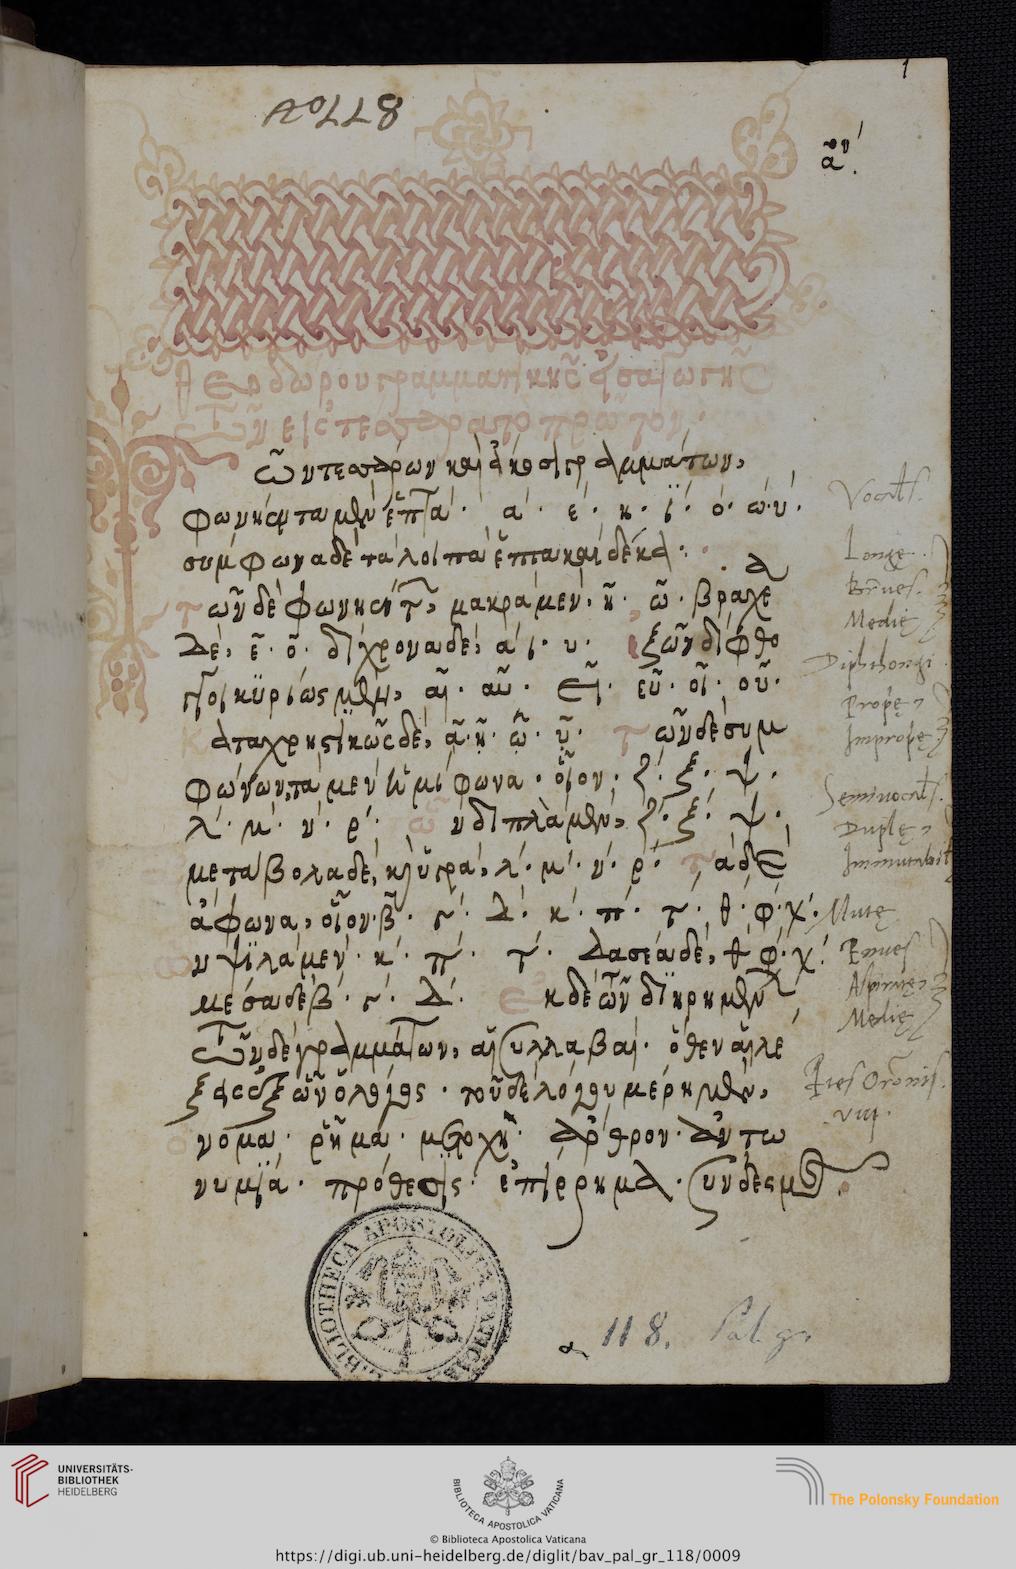 1
Αο 118
αον.
Θεοδώρου γραμματικῆς εἰσαγωγῆς
τῶν εἰς τέσσαρα τὸ πρῶτον.
Τῶν τεσσάρων καὶ εἴκοσι γραμμάτων,
φωνήεντα μὲν ἑπτά· α· ε· η· ϊ· ο· ω· υ·
Vocales.
σύμφωνα δὲ τὰ λοιπὰ ἑπτακαίδεκα.
Longę.
τῶν δὲ φωνηέντων, μακρὰ μέν, η· ω· βραχέα
Breues.
δέ, ε· ο· δίχρονα δέ, α· ι· υ· ἐξ ὧν δίφθο
Medię
Diphthongi
γγοι κυρίως μὲν, αι· αυ· ει· ευ· οι· ου·
Propę,
καταχρηστικῶς δέ, ᾳ· ῃ· ῳ· υι· τῶν δὲ συμ
Impropę
φώνων, τὰ μὲν ἡμίφωνα· οἷον, ζ· ξ· ψ·
Semiuocales.
λ· μ· ν· ρ· ὧν διπλᾶ μὲν, ζ· ξ· ψ·
Duplę,
ἀμετάβολα δέ, κ' ὑγρά, λ· μ· ν· ρ· τὰ δὲ
Immutabil
ἄφωνα, οἷον· β· γ· δ· κ· π· τ· θ· φ· χ·
Mutę
ὧν ψιλὰ μέν· κ· π· τ· δασέα δέ, θ· φ· χ·
μέσα δὲ β· γ· δ· ἐκ δὲ τῶν διῃρημένων
Aspiratę,
Medię
τῶν δὲ γραμμάτων, αἱ συλλαβαί· ὅθεν αἱ λέ
ξεις· ἐξ ὧν ὁ λόγος· τοῦ δὲ λόγου μέρη μὲν,
Ptes Orōnis.
ὄνομα· ῥῆμα· μετοχή· ἄρθρον· ἀντω
νυμία· πρόθεσις· ἐπίρρημα· σύνδεσμος.
BIBLIOTHECA APOSTOLICA VATICANA
118. Pal. gr.
UNIVERSITÄTS-
BIBLIOTHEK
HEIDELBERG
BIBLIOTECA APOSTOLICA VATICANA
The Polonsky Foundation
© Biblioteca Apostolica Vaticana
https://digi.ub.uni-heidelberg.de/diglit/bav_pal_gr_118/0009